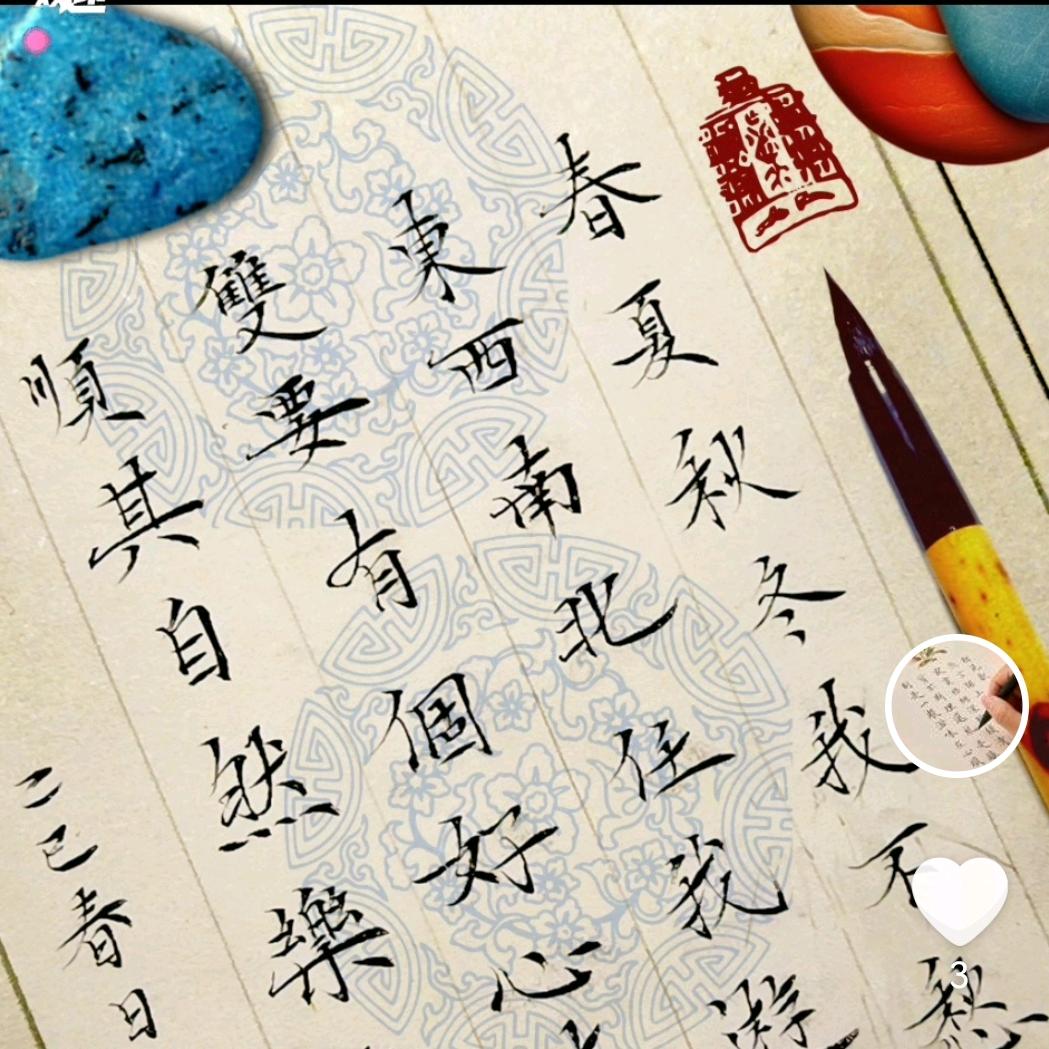 春夏秋冬我不愁
東西南北任我遊
雙要有個好心
順其自然樂
乙巳春日
3